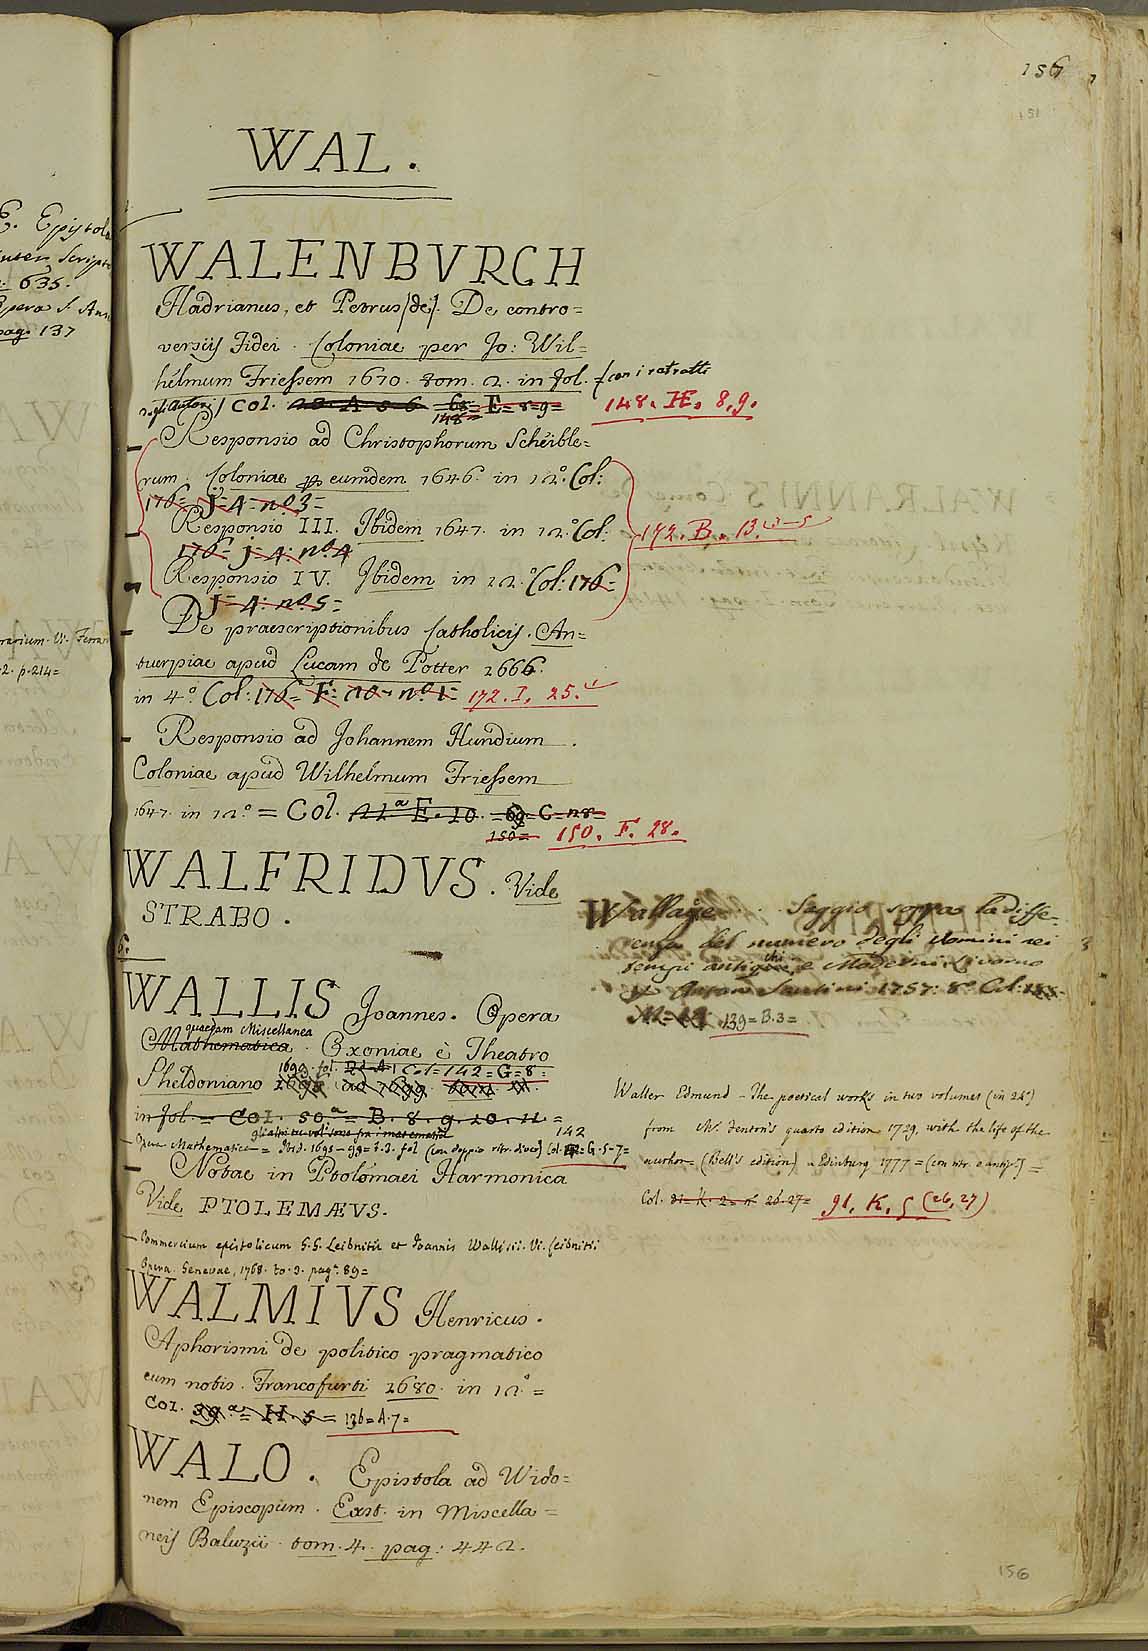 156
151
WAL.
E. Epistol
635.
pag. 137
WALENBVRCH
Hadrianus, et Petrus (de). De contro=
versiis Fidei. Coloniae per Jo: Wil=
helmum Friessem 1670. tom. 2. in fol. (con i ratratti
degli Autori) Col. 68= E= 8=9= 148. E. 8.9.
148=
Responsio ad Christophorum Scheible=
rum. Coloniae p eumdem 1646. in 12º Col:
176= J=4= nº3=
Responsio III. Ibidem 1647. in 12º Col: 172. B. 13.
176= J=4: nº4
Responsio IV. Ibidem in 12º Col: 176=
J=4: nº5=
De praescriptionibus Catholicis. An=
tuerpiae apud Lucam de Potter 1666.
in 4º Col: 176= F= 10= nº1= 172. I. 25.
Responsio ad Johannem Hundium.
Coloniae apud Wilhelmum Friessem
1647. in 12º = Col. 11ª E. 10. =69= C=28=
150= 150. F. 28.
WALFRIDVS. Vide
STRABO.
WALLIS Joannes. Opera
quaedam Miscellanea
Mathematica. Oxoniae è Theatro
1699. fol. Col=142=G=8=
Sheldoniano 1695 ad 1699
in fol. = Col. 50ª = B. 8. 9. 10. 11. =
142
Opera Mathematica = Ibid. 1695-99= t.3. fol (con doppio ritr. d'esso) Col. =G=5-7=
Notae in Ptolomaei Harmonica
Vide PTOLEMÆVS.
Commercium epistolicum G.G. Leibnitii et Joannis Wallisii. Vi. Leibnitii
Opera. Genevae, 1768. to. 3. pagª 89=
WALMIVS Henricus.
Aphorismi de politico pragmatico
cum notis. Francofurti 1680. in 12º =
Col. 39ª = H. 5 = 136=A.7=
WALO. Epistola ad Wido=
nem Episcopum. Exst. in Miscella=
neis Baluzii tom. 4. pag: 442.
Wallaçe Saggio sopra la diffe=
renza del numero degli uomini nei
tempi antichi, e Moderni. Livorno
Santini 1757: 8º Col:
139=B.3=
Waller Edmund - The poetical works in two volumes (in 24º)
from Mr. Fenton's quarto edition 1729. with the life of the
author= (Bell's edition) = Edinburg 1777 = (con ritr. e antip:) =
Col. 91= K. 2= nº 26.27= 91. K. 5 (26, 27)
156